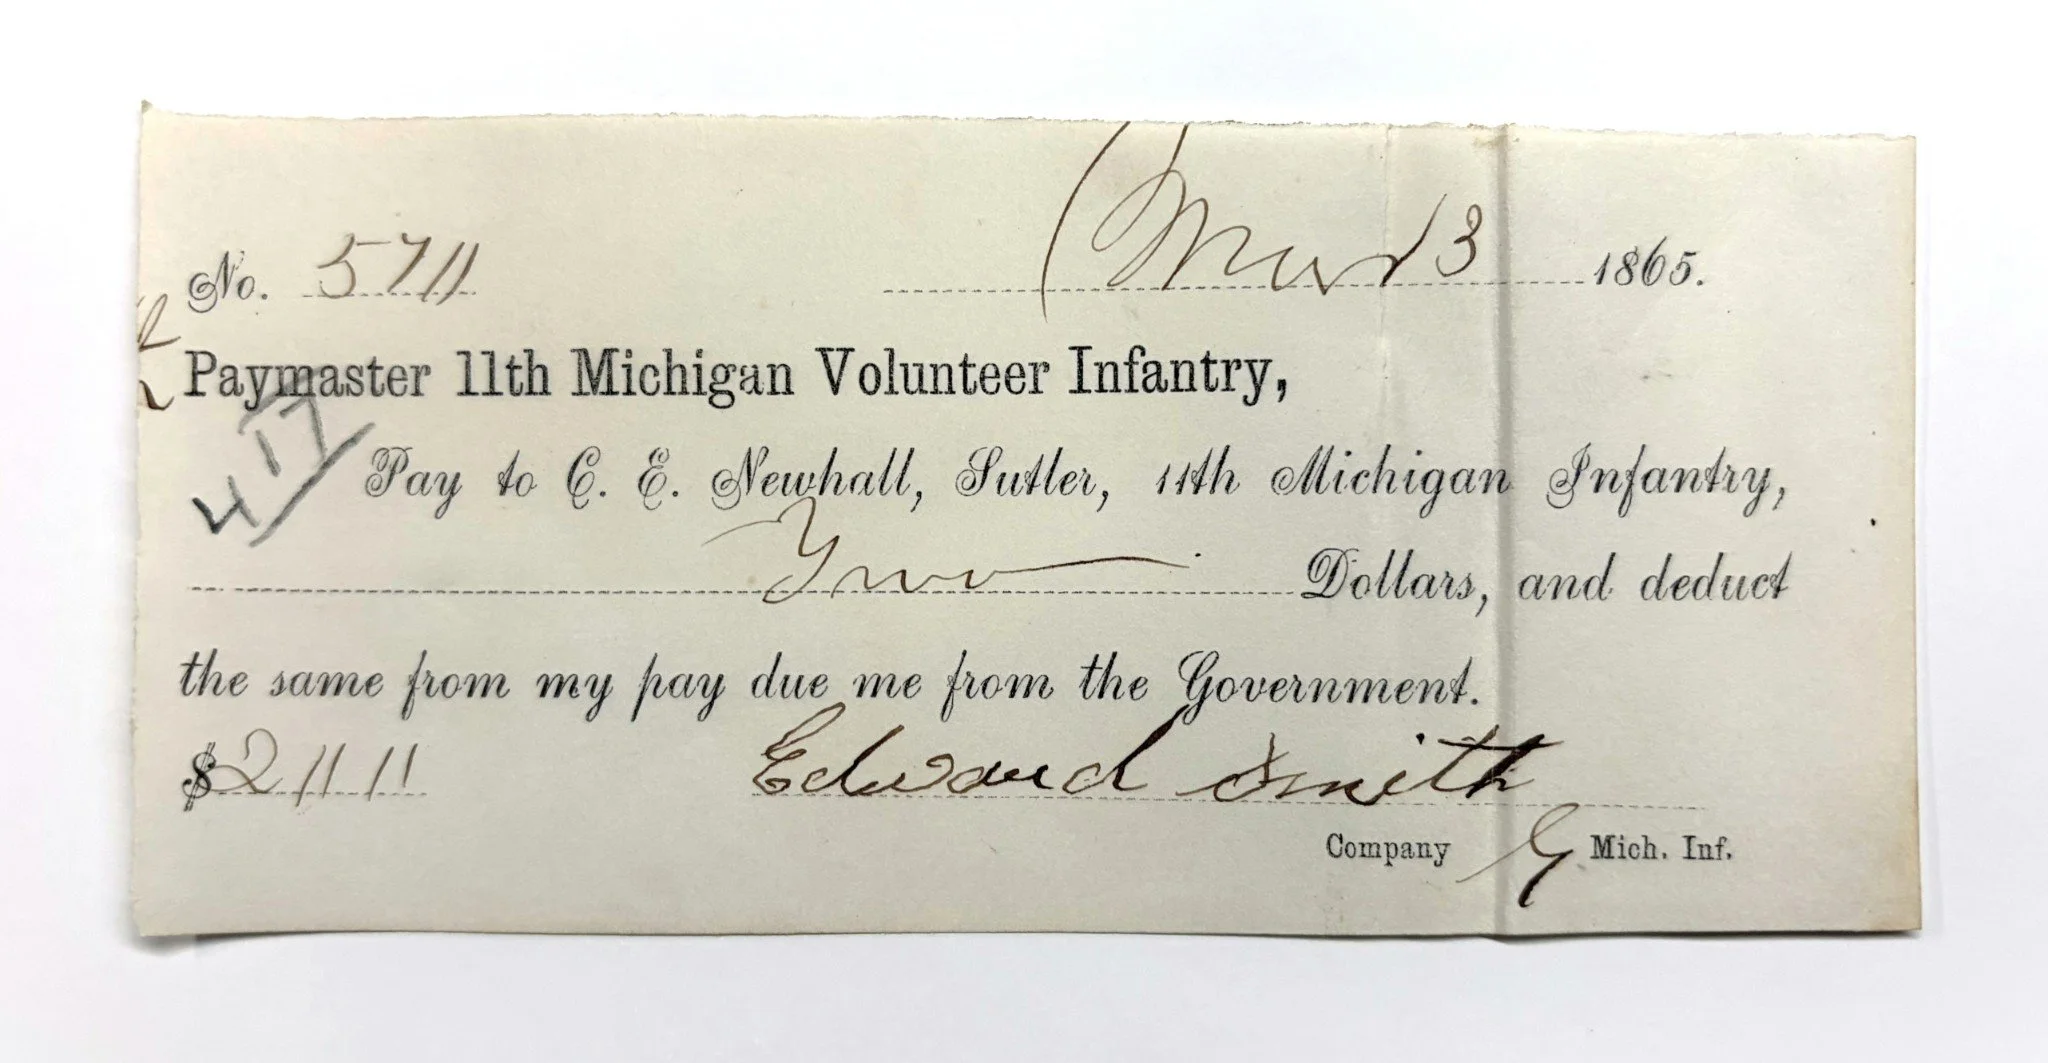 No. 5711 Mar 13 1865.
Paymaster 11th Michigan Volunteer Infantry,
417
Pay to C. E. Newhall, Sutler, 11th Michigan Infantry,
Two Dollars, and deduct
the same from my pay due me from the Government.
$2 Edward Smith
Company G Mich. Inf.